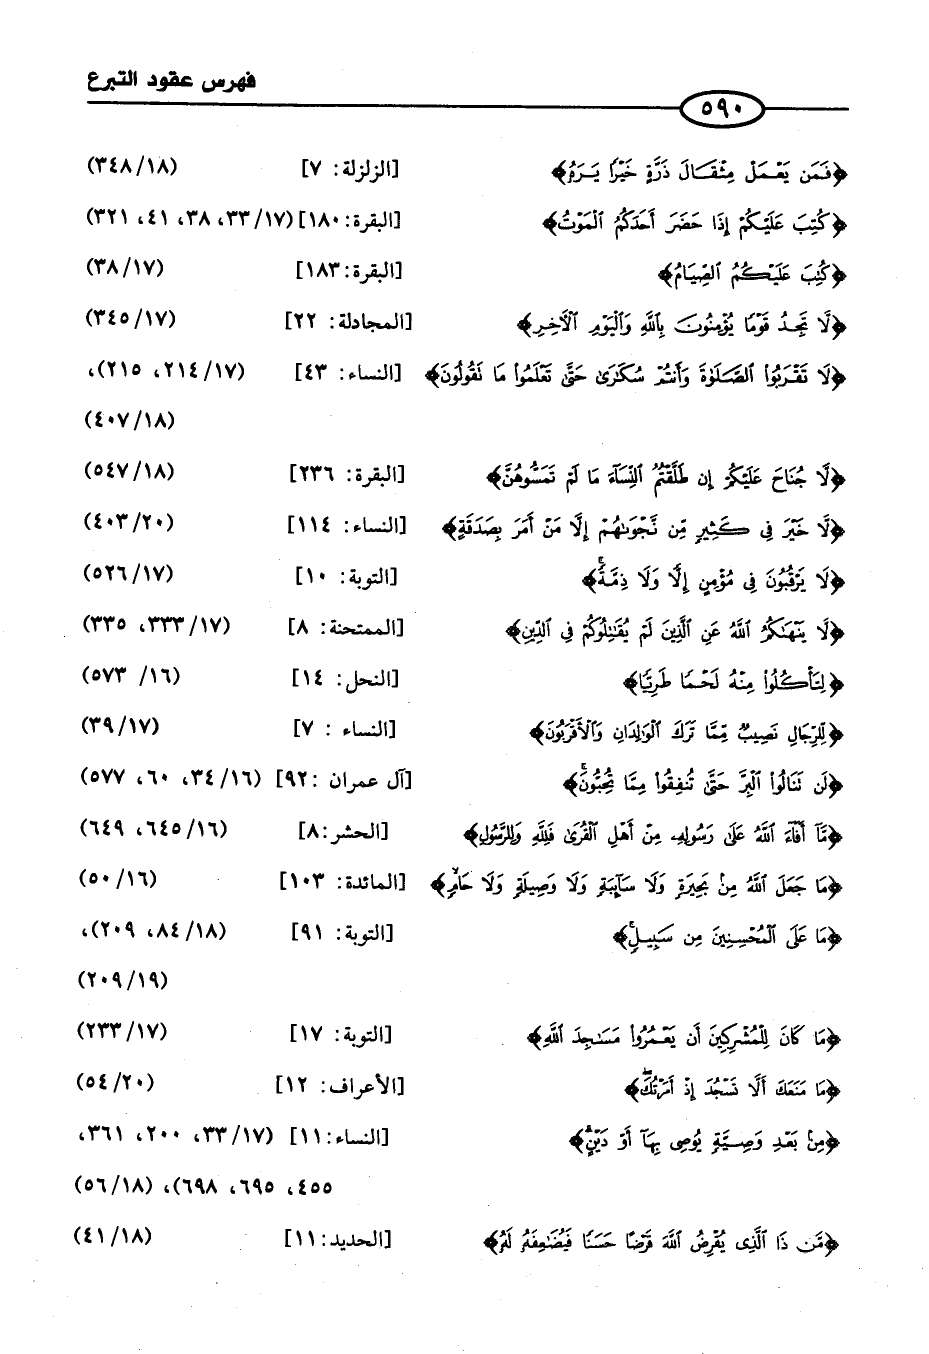 فهرس عقود التبرع
٥٩٠
﴿فَمَن يَعْمَلْ مِثْقَالَ ذَرَّةٍ خَيْرًا يَرَهُ﴾ [الزلزلة: ٧] (٣٤٨/١٨)
﴿كُتِبَ عَلَيْكُمْ إِذَا حَضَرَ أَحَدَكُمُ الْمَوْتُ﴾ [البقرة: ١٨٠] (٣٣/١٧، ٣٨، ٤١، ٣٢١)
﴿كُتِبَ عَلَيْكُمُ الصِّيَامُ﴾ [البقرة: ١٨٣] (٣٨/١٧)
﴿لَّا تَجِدُ قَوْمًا يُؤْمِنُونَ بِاللَّهِ وَالْيَوْمِ الْآخِرِ﴾ [المجادلة: ٢٢] (٣٤٥/١٧)
﴿لَا تَقْرَبُوا الصَّلَوٰةَ وَأَنتُمْ سُكَارَىٰ حَتَّىٰ تَعْلَمُوا مَا تَقُولُونَ﴾ [النساء: ٤٣] (٢١٤/١٧، ٢١٥)،
(٤٠٧/١٨)
﴿لَّا جُنَاحَ عَلَيْكُمْ إِن طَلَّقْتُمُ النِّسَآءَ مَا لَمْ تَمَسُّوهُنَّ﴾ [البقرة: ٢٣٦] (٥٤٧/١٨)
﴿لَّا خَيْرَ فِي كَثِيرٍ مِّن نَّجْوَىٰهُمْ إِلَّا مَنْ أَمَرَ بِصَدَقَةٍ﴾ [النساء: ١١٤] (٤٠٣/٢٠)
﴿لَا يَرْقُبُونَ فِي مُؤْمِنٍ إِلًّا وَلَا ذِمَّةً﴾ [التوبة: ١٠] (٥٢٦/١٧)
﴿لَا يَنْهَىٰكُمُ اللَّهُ عَنِ الَّذِينَ لَمْ يُقَٰتِلُوكُمْ فِي الدِّينِ﴾ [الممتحنة: ٨] (٣٣٣/١٧، ٣٣٥)
﴿لِتَأْكُلُوا مِنْهُ لَحْمًا طَرِيًّا﴾ [النحل: ١٤] (١٦/ ٥٧٣)
﴿لِّلرِّجَالِ نَصِيبٌ مِّمَّا تَرَكَ الْوَالِدَانِ وَالْأَقْرَبُونَ﴾ [النساء : ٧] (٣٩/١٧)
﴿لَن تَنَالُوا الْبِرَّ حَتَّىٰ تُنفِقُوا مِمَّا تُحِبُّونَ﴾ [آل عمران :٩٢] (٣٤/١٦، ٦٠، ٥٧٧)
﴿مَّآ أَفَآءَ اللَّهُ عَلَىٰ رَسُولِهِ مِنْ أَهْلِ الْقُرَىٰ فَلِلَّهِ وَلِلرَّسُولِ﴾ [الحشر:٨] (٦٤٥/١٦، ٦٤٩)
﴿مَا جَعَلَ اللَّهُ مِنۢ بَحِيرَةٍ وَلَا سَآئِبَةٍ وَلَا وَصِيلَةٍ وَلَا حَامٍ﴾ [المائدة: ١٠٣] (٥٠/١٦)
﴿مَا عَلَى الْمُحْسِنِينَ مِن سَبِيلٍ﴾ [التوبة: ٩١] (٨٤/١٨، ٢٠٩)،
(٢٠٩/١٩)
﴿مَا كَانَ لِلْمُشْرِكِينَ أَن يَعْمُرُوا مَسَٰجِدَ اللَّهِ﴾ [التوبة: ١٧] (٢٣٣/١٧)
﴿مَا مَنَعَكَ أَلَّا تَسْجُدَ إِذْ أَمَرْتُكَ﴾ [الأعراف: ١٢] (٥٤/٢٠)
﴿مِنۢ بَعْدِ وَصِيَّةٍ يُوصِي بِهَآ أَوْ دَيْنٍ﴾ [النساء:١١] (٣٣/١٧، ٢٠٠، ٣٦١،
٤٥٥، ٦٩٥، ٦٩٨)، (٥٦/١٨)
﴿مَّن ذَا الَّذِي يُقْرِضُ اللَّهَ قَرْضًا حَسَنًا فَيُضَٰعِفَهُ لَهُ﴾ [الحديد:١١] (٤١/١٨)